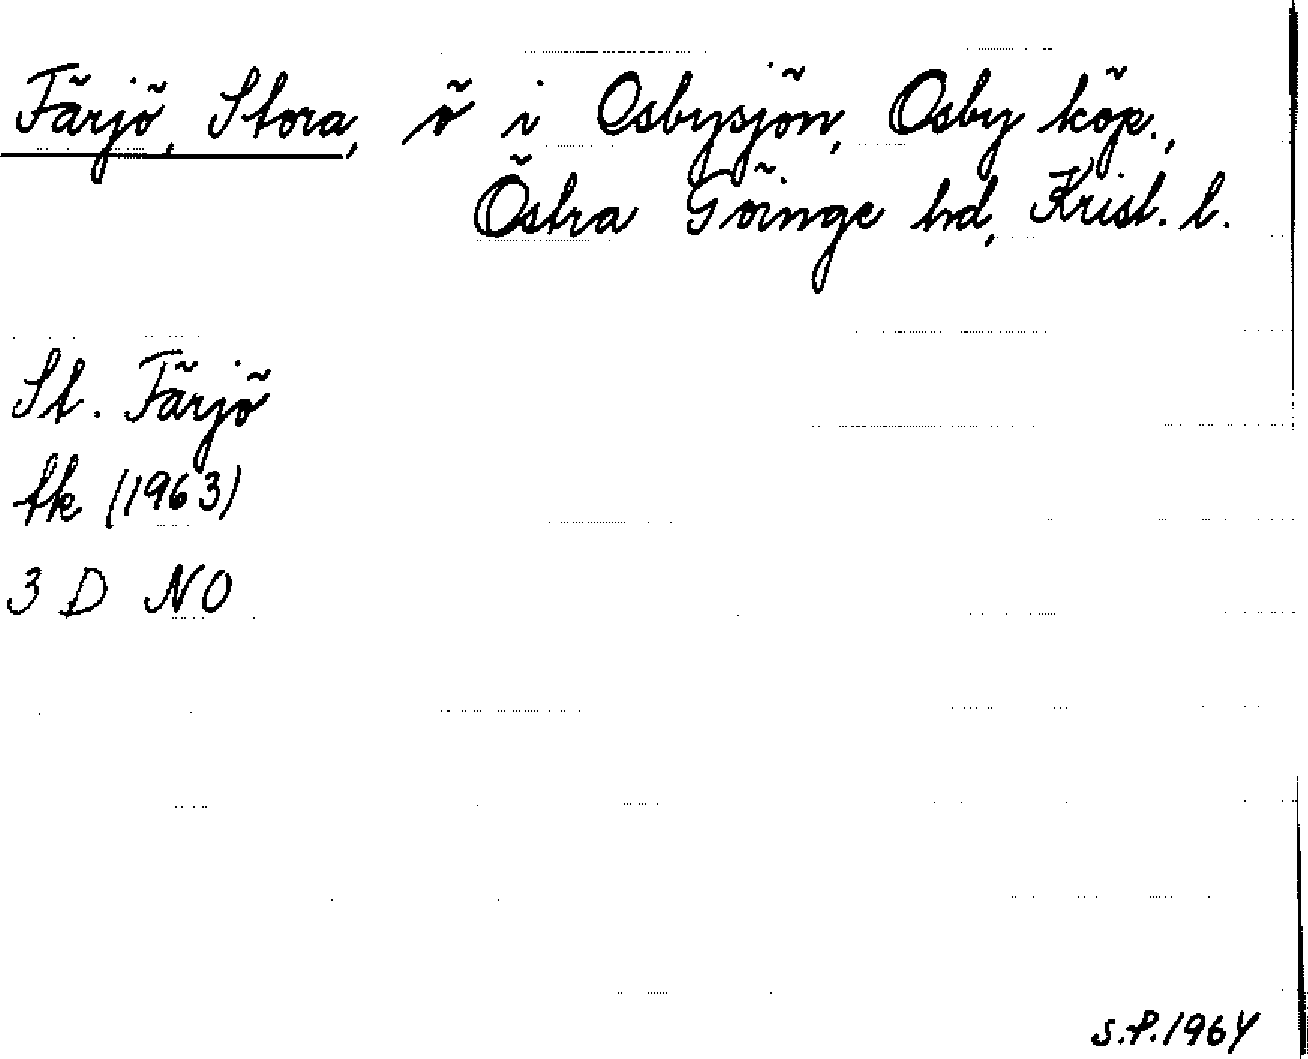 Färjö, Stora, ö i Osbysjön, Osby köp.,
Östra Göinge hd, Krist. l.
St. Färjö
tk (1963)
3 D NO
S.P. 1964